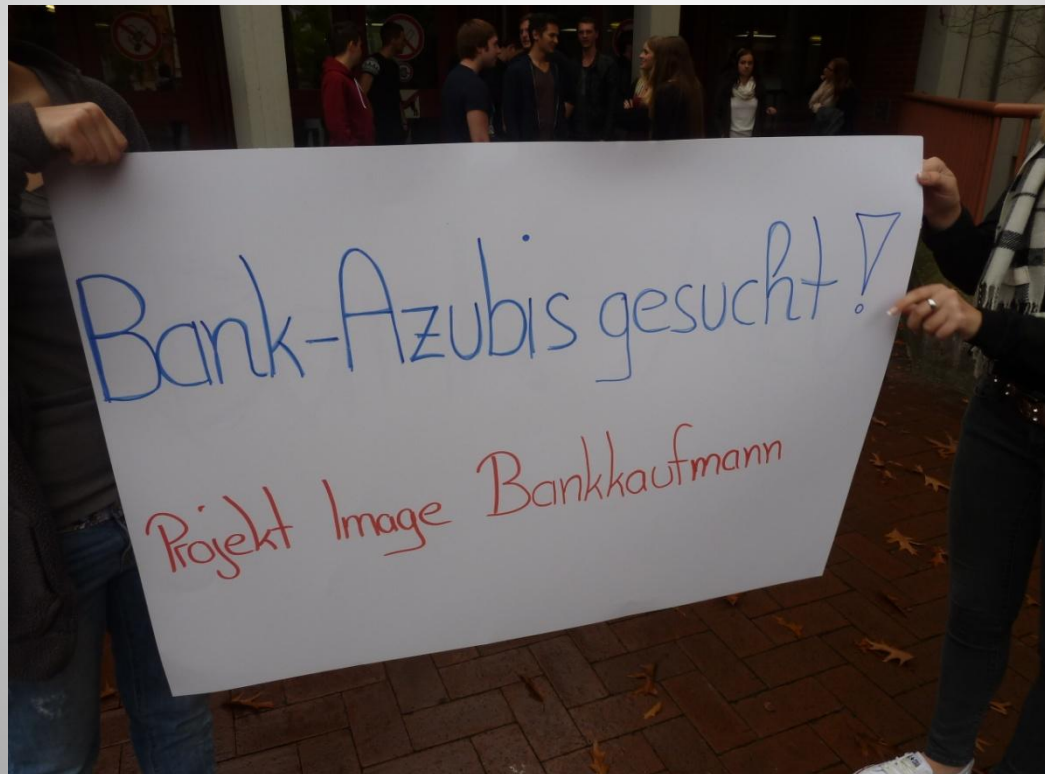 Bank-Azubis gesucht!
Projekt Image Bankkaufmann